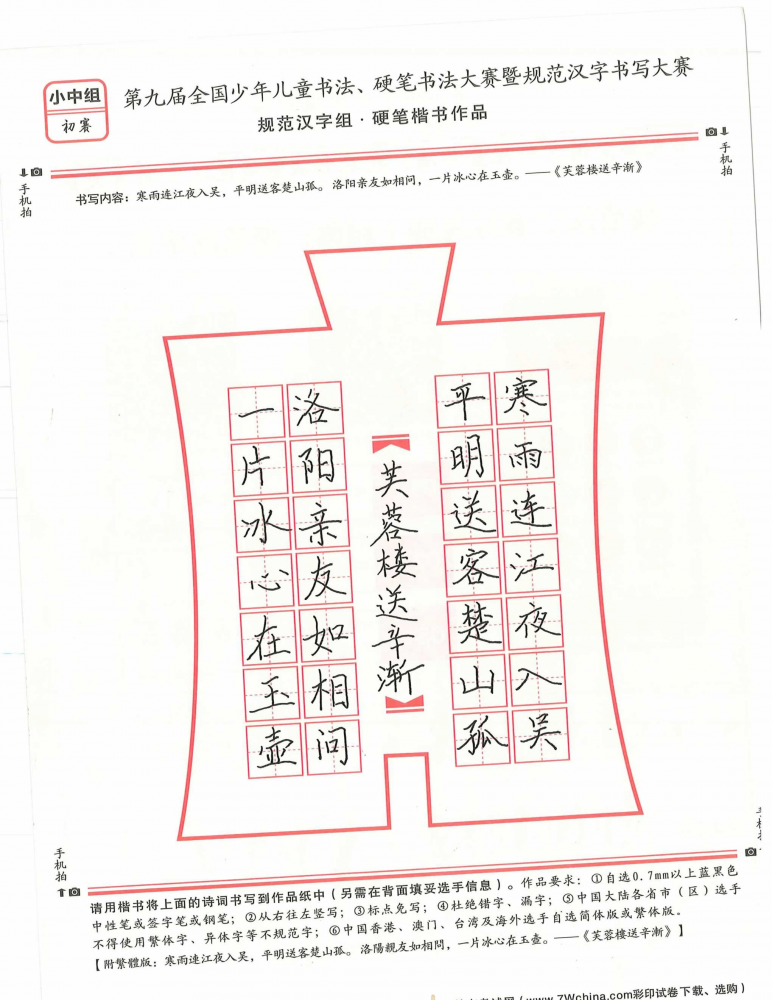 小中组
初赛
第九届全国少年儿童书法、硬笔书法大赛暨规范汉字书写大赛
规范汉字组·硬笔楷书作品
手机拍
手机拍
书写内容：寒雨连江夜入吴，平明送客楚山孤。洛阳亲友如相问，一片冰心在玉壶。——《芙蓉楼送辛渐》
寒雨连江夜入吴
平明送客楚山孤
芙蓉楼送辛渐
洛阳亲友如相问
一片冰心在玉壶
手机拍
请用楷书将上面的诗词书写到作品纸中（另需在背面填妥选手信息）。作品要求：①自选0.7mm以上蓝黑色
中性笔或签字笔或钢笔；②从右往左竖写；③标点免写；④杜绝错字、漏字；⑤中国大陆各省市（区）选手
不得使用繁体字、异体字等不规范字；⑥中国香港、澳门、台湾及海外选手自选简体版或繁体版。
【附繁體版：寒雨連江夜入吳，平明送客楚山孤。洛陽親友如相問，一片冰心在玉壺。——《芙蓉樓送辛漸》】
（www.7Wchina.com彩印试卷下载、选购）